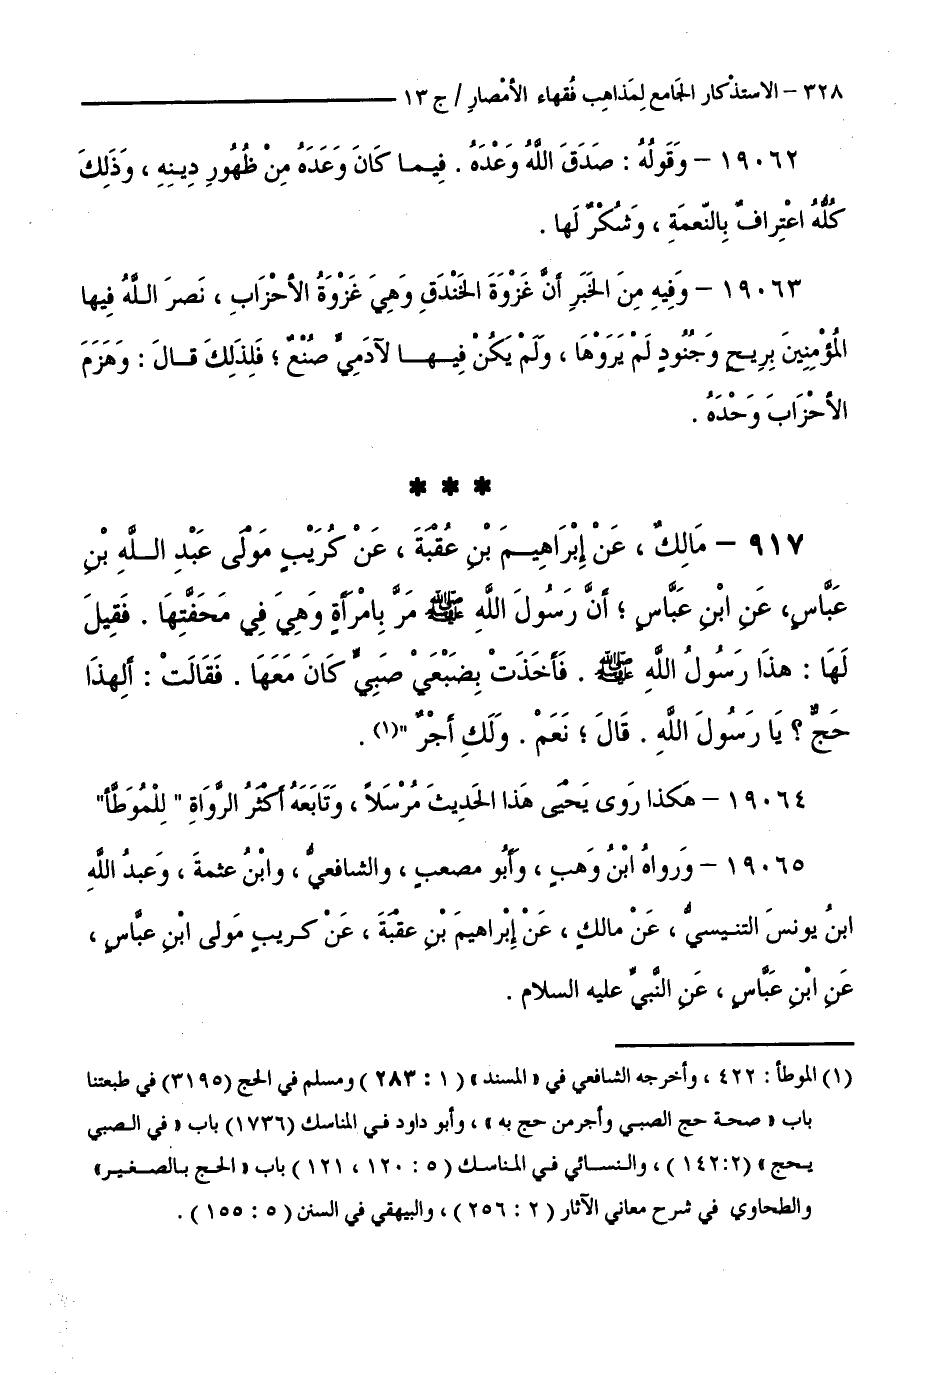 ٣٢٨ – الاستذْكار الجَامع لِمَذاهِب فُقهاء الأمْصارِ / ج ١٣
١٩٠٦٢ – وَقَولُهُ : صَدَقَ اللَّهُ وَعْدَهُ . فِيمـا كَانَ وَعَدَهُ مِنْ ظُهُورِ دِيـنِهِ ، وَذَلِكَ
كُلُّهُ اعْتِرافٌ بِالنِّعمَةِ ، وَشُكْرٌ لَها .
١٩٠٦٣ – وَفِيهِ مِنَ الخَبَرِ أنَّ غَزْوَةَ الخَنْدَقِ وَهِيَ غَزْوَةُ الأحْزَابِ ، نَصرَ اللَّهُ فِيها
المُؤْمِنِينَ بِرِيـحٍ وَجُنُودٍ لَمْ يَرَوْهَا ، وَلَمْ يَكُنْ فِيـهـا لآدَمِيٍّ صُنْعٌ ؛ فَلِذَلِكَ قـالَ : وَهَزَمَ
الأحْزَابَ وَحْدَهُ .
* * *
٩١٧ – مَالِكٌ ، عَنْ إِبْرَاهِيـمَ بْنِ عُقْبَةَ ، عَنْ كُرَيْبٍ مَوْلَى عَبْدِ الـلَّهِ بْنِ
عَبَّاسٍ، عَنِ ابْنِ عَبَّاسٍ ؛ أنَّ رَسُولَ اللَّهِ ﷺ مَرَّ بِامْرَأةٍ وَهِيَ فِي مَحَفَّتِهَا . فَقِيلَ
لَهَا : هذَا رَسُولُ اللَّهِ ﷺ . فَأخَذَتْ بِضَبْعَيْ صَبِيٍّ كَانَ مَعَهَا . فَقَالَتْ : ألِهذَا
حَجٌّ ؟ يَا رَسُولَ اللَّهِ . قَالَ ؛ نَعَمْ . وَلَكِ أجْرٌ "(١) .
١٩٠٦٤ – هَكذا رَوى يَحْيَى هَذا الحَديثَ مُرْسَلاً ، وَتَابَعَهُ أكْثَرُ الرُّوَاةِ " لِلْمُوَطَّأ"
١٩٠٦٥ – وَرواهُ ابْنُ وَهبٍ ، وَأَبُو مصعبٍ ، والشافعيُّ ، وابْنُ عثمةَ ، وَعبدُ اللَّهِ
ابنُ يونسَ التنـيسيُّ ، عَنْ مالكٍ ، عَنْ إِبْراهيمَ بْنِ عقبَةَ ، عَنْ كـريبٍ مَولى ابْنِ عبَّاسٍ ،
عَنِ ابْنِ عَبَّاسٍ ، عَنِ النَّبيِّ عليه السلام .
(١) الموطأ : ٤٢٢ ، وأخرجه الشافعي في « المسند » ( ١ : ٢٨٣ ) ومسلم في الحج (٣١٩٥) في طبعتنا
باب « صحة حج الصبي وأجر من حج به » ، وأبو داود فـي المناسك (١٧٣٦) باب « في الـصبي
يـحج » (١٤٢:٢ ) ، والـنسـائي فـي المـناسـك ( ٥ : ١٢٠ ، ١٢١ ) باب « الحـج بـالصـغيـر»
والطحاوي في شرح معاني الآثار ( ٢ : ٢٥٦ ) ، والبيهقي في السنن ( ٥ : ١٥٥ ) .